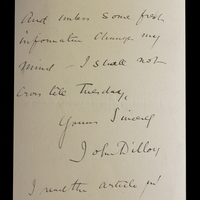 And unless some fresh
information change my
mind – I shall not
cross till Tuesday,
Yours Sincerely
John Dillon
I read the article in